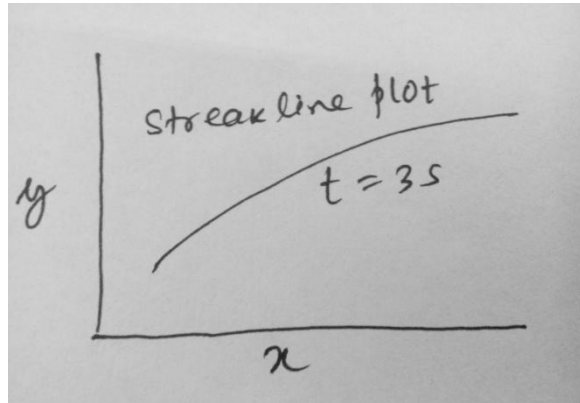 Streakline plot
t = 3s
y
x